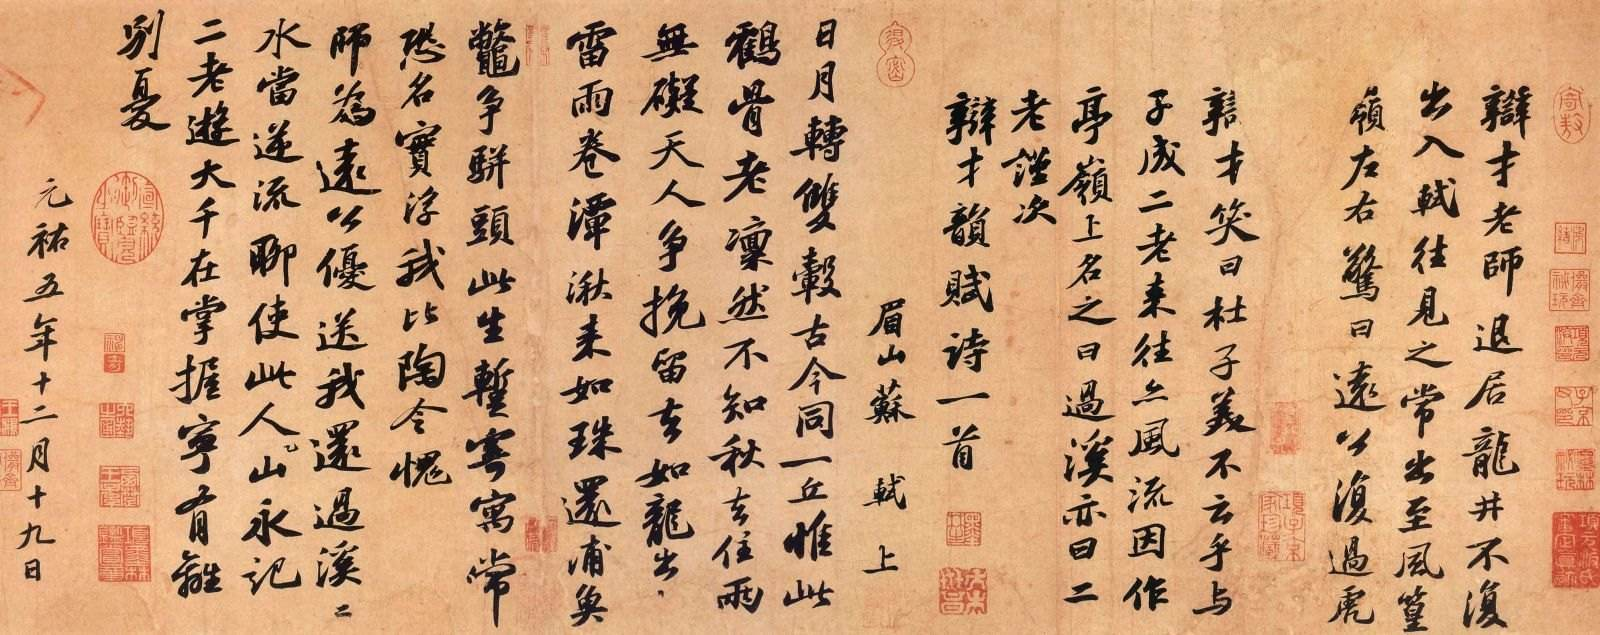 辯才老師退居龍井不復
出入軾往見之常出至風篁
嶺左右驚曰遠公復過虎
溪矣辯才笑曰杜子美不云乎與
子成二老來往亦風流因作
亭嶺上名之曰過溪亦曰二
老謹次
辯才韻賦詩一首
眉山蘇軾上
日月轉雙轂古今同一丘惟此
鶴骨老凜然不知秋去住兩
無礙天人爭挽留去如龍出
雷雨卷潭湫來如珠還浦魚
鼈爭駢頭此生暫寄寓常
恐名實浮我比陶令愧
師為遠公優送我還過溪
水當逆流聊使此人山永記
二老遊大千在掌握寧有離
別憂
元祐五年十二月十九日